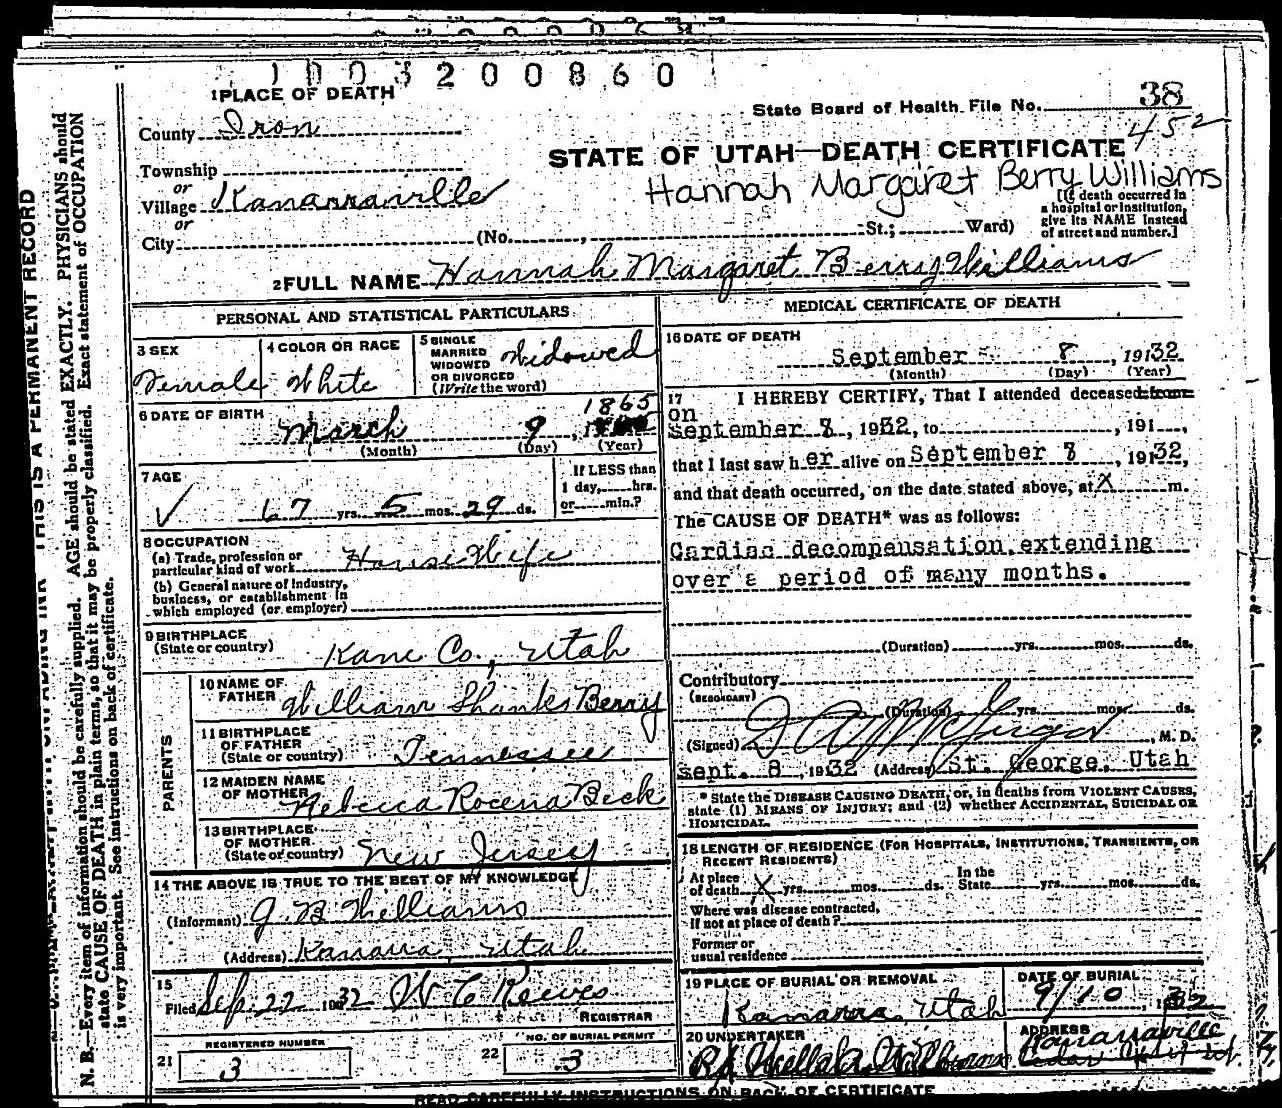 1003200860
1 PLACE OF DEATH
State Board of Health File No. 38
452
County Iron
STATE OF UTAH—DEATH CERTIFICATE
Township
or
Hannah Margaret Berry Williams
Village Kanarraville
or
[If death occurred in
a hospital or institution,
give its NAME instead
of street and number.]
City (No. , St.; Ward)
2 FULL NAME Hannah Margaret Berry Williams
PERSONAL AND STATISTICAL PARTICULARS
3 SEX
Female
4 COLOR OR RACE
White
5 SINGLE
MARRIED
WIDOWED
OR DIVORCED
(Write the word)
Widowed
6 DATE OF BIRTH
1865
March 9, 1
(Month) (Day) (Year)
7 AGE
67 yrs. 5 mos. 29 ds.
If LESS than
1 day, hrs.
or min.?
8 OCCUPATION
(a) Trade, profession or
particular kind of work House Wife
(b) General nature of industry,
business, or establishment in
which employed (or employer)
9 BIRTHPLACE
(State or country) Kane Co., Utah
PARENTS
10 NAME OF
FATHER William Shanks Berry
11 BIRTHPLACE
OF FATHER
(State or country) Tennessee
12 MAIDEN NAME
OF MOTHER Rebecca Rocena Beck
13 BIRTHPLACE
OF MOTHER
(State or country) New Jersey
14 THE ABOVE IS TRUE TO THE BEST OF MY KNOWLEDGE
(Informant) G. B. Williams
(Address) Kanarra, Utah
15
Filed Sep. 22 1932 W C Reeves
REGISTRAR
REGISTERED NUMBER
21 3
NO. OF BURIAL PERMIT
22 3
MEDICAL CERTIFICATE OF DEATH
16 DATE OF DEATH
September 8, 19132
(Month) (Day) (Year)
17 I HEREBY CERTIFY, That I attended deceased from
on
september 8, 1932, to , 191 ,
that I last saw her alive on September 8, 19132,
and that death occurred, on the date stated above, at X m.
The CAUSE OF DEATH* was as follows:
Cardiac decompensation extending
over a period of many months.
(Duration) yrs. mos. ds.
Contributory
(SECONDARY)
(Duration) yrs. mos. ds.
(Signed) M. D.
sept. 8, 1932 (Address) St. George, Utah
* State the DISEASE CAUSING DEATH, or, in deaths from VIOLENT CAUSES,
state (1) MEANS OF INJURY; and (2) whether ACCIDENTAL, SUICIDAL OR
HOMICIDAL.
18 LENGTH OF RESIDENCE (FOR HOSPITALS, INSTITUTIONS, TRANSIENTS, OR
RECENT RESIDENTS)
At place
of death X yrs. mos. ds.
In the
State yrs. mos. ds.
Where was disease contracted,
if not at place of death?
Former or
usual residence
19 PLACE OF BURIAL OR REMOVAL
Kanarra, Utah
DATE OF BURIAL
9/10, 1932
20 UNDERTAKER
ADDRESS
Kanarraville
READ CAREFULLY INSTRUCTIONS ON BACK OF CERTIFICATE
THIS IS A PERMANENT RECORD
N. B.—Every item of information should be carefully supplied. AGE should be stated EXACTLY. PHYSICIANS should
state CAUSE OF DEATH in plain terms, so that it may be properly classified. Exact statement of OCCUPATION
is very important. See instructions on back of certificate.